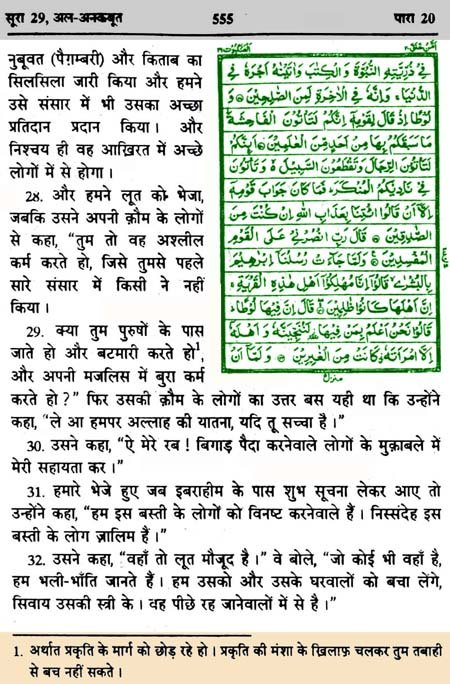 सूरा 29, अल-अनकबूत
555
पारा 20
नुबूवत (पैग़म्बरी) और किताब का
सिलसिला जारी किया और हमने
उसे संसार में भी उसका अच्छा
प्रतिदान प्रदान किया। और
निश्चय ही वह आख़िरत में अच्छे
लोगों में से होगा।
28. और हमने लूत को भेजा,
जबकि उसने अपनी क़ौम के लोगों
से कहा, “तुम तो वह अश्लील
कर्म करते हो, जिसे तुमसे पहले
सारे संसार में किसी ने नहीं
किया।
29. क्या तुम पुरुषों के पास
जाते हो और बटमारी करते हो¹,
और अपनी मजलिस में बुरा कर्म
فِيْ ذُرِّيَّتِهِ النُّبُوَّةَ وَالْكِتٰبَ وَاٰتَيْنٰهُ اَجْرَهٗ فِي
الدُّنْيَا ۚ وَاِنَّهٗ فِي الْاٰخِرَةِ لَمِنَ الصّٰلِحِيْنَ ۞ وَ
لُوْطًا اِذْ قَالَ لِقَوْمِهٖٓ اِنَّكُمْ لَتَاْتُوْنَ الْفَاحِشَةَ
مَا سَبَقَكُمْ بِهَا مِنْ اَحَدٍ مِّنَ الْعٰلَمِيْنَ ۞ اَئِنَّكُمْ
لَتَاْتُوْنَ الرِّجَالَ وَتَقْطَعُوْنَ السَّبِيْلَ ۙ وَتَاْتُوْنَ
فِيْ نَادِيْكُمُ الْمُنْكَرَ ؕ فَمَا كَانَ جَوَابَ قَوْمِهٖٓ
اِلَّآ اَنْ قَالُوا ائْتِنَا بِعَذَابِ اللّٰهِ اِنْ كُنْتَ مِنَ
الصّٰدِقِيْنَ ۞ قَالَ رَبِّ انْصُرْنِيْ عَلَى الْقَوْمِ
الْمُفْسِدِيْنَ ۞ وَلَمَّا جَآءَتْ رُسُلُنَآ اِبْرٰهِيْمَ
بِالْبُشْرٰى ۙ قَالُوْٓا اِنَّا مُهْلِكُوْٓا اَهْلِ هٰذِهِ الْقَرْيَةِ ۚ
اِنَّ اَهْلَهَا كَانُوْا ظٰلِمِيْنَ ۞ قَالَ اِنَّ فِيْهَا لُوْطًا ؕ
قَالُوْا نَحْنُ اَعْلَمُ بِمَنْ فِيْهَا ۫ لَنُنَجِّيَنَّهٗ وَاَهْلَهٗٓ
اِلَّا امْرَاَتَهٗ ۫ كَانَتْ مِنَ الْغٰبِرِيْنَ ۞ وَلَمَّآ اَنْ
करते हो?” फिर उसकी क़ौम के लोगों का उत्तर बस यही था कि उन्होंने
कहा, “ले आ हमपर अल्लाह की यातना, यदि तू सच्चा है।”
30. उसने कहा, “ऐ मेरे रब! बिगाड़ पैदा करनेवाले लोगों के मुक़ाबले में
मेरी सहायता कर।”
31. हमारे भेजे हुए जब इबराहीम के पास शुभ सूचना लेकर आए तो
उन्होंने कहा, “हम इस बस्ती के लोगों को विनष्ट करनेवाले हैं। निस्संदेह इस
बस्ती के लोग ज़ालिम हैं।”
32. उसने कहा, “वहाँ तो लूत मौजूद है।” वे बोले, “जो कोई भी वहाँ है,
हम भली-भाँति जानते हैं। हम उसको और उसके घरवालों को बचा लेंगे,
सिवाय उसकी स्त्री के। वह पीछे रह जानेवालों में से है।”
1. अर्थात प्रकृति के मार्ग को छोड़ रहे हो। प्रकृति की मंशा के ख़िलाफ़ चलकर तुम तबाही
से बच नहीं सकते।